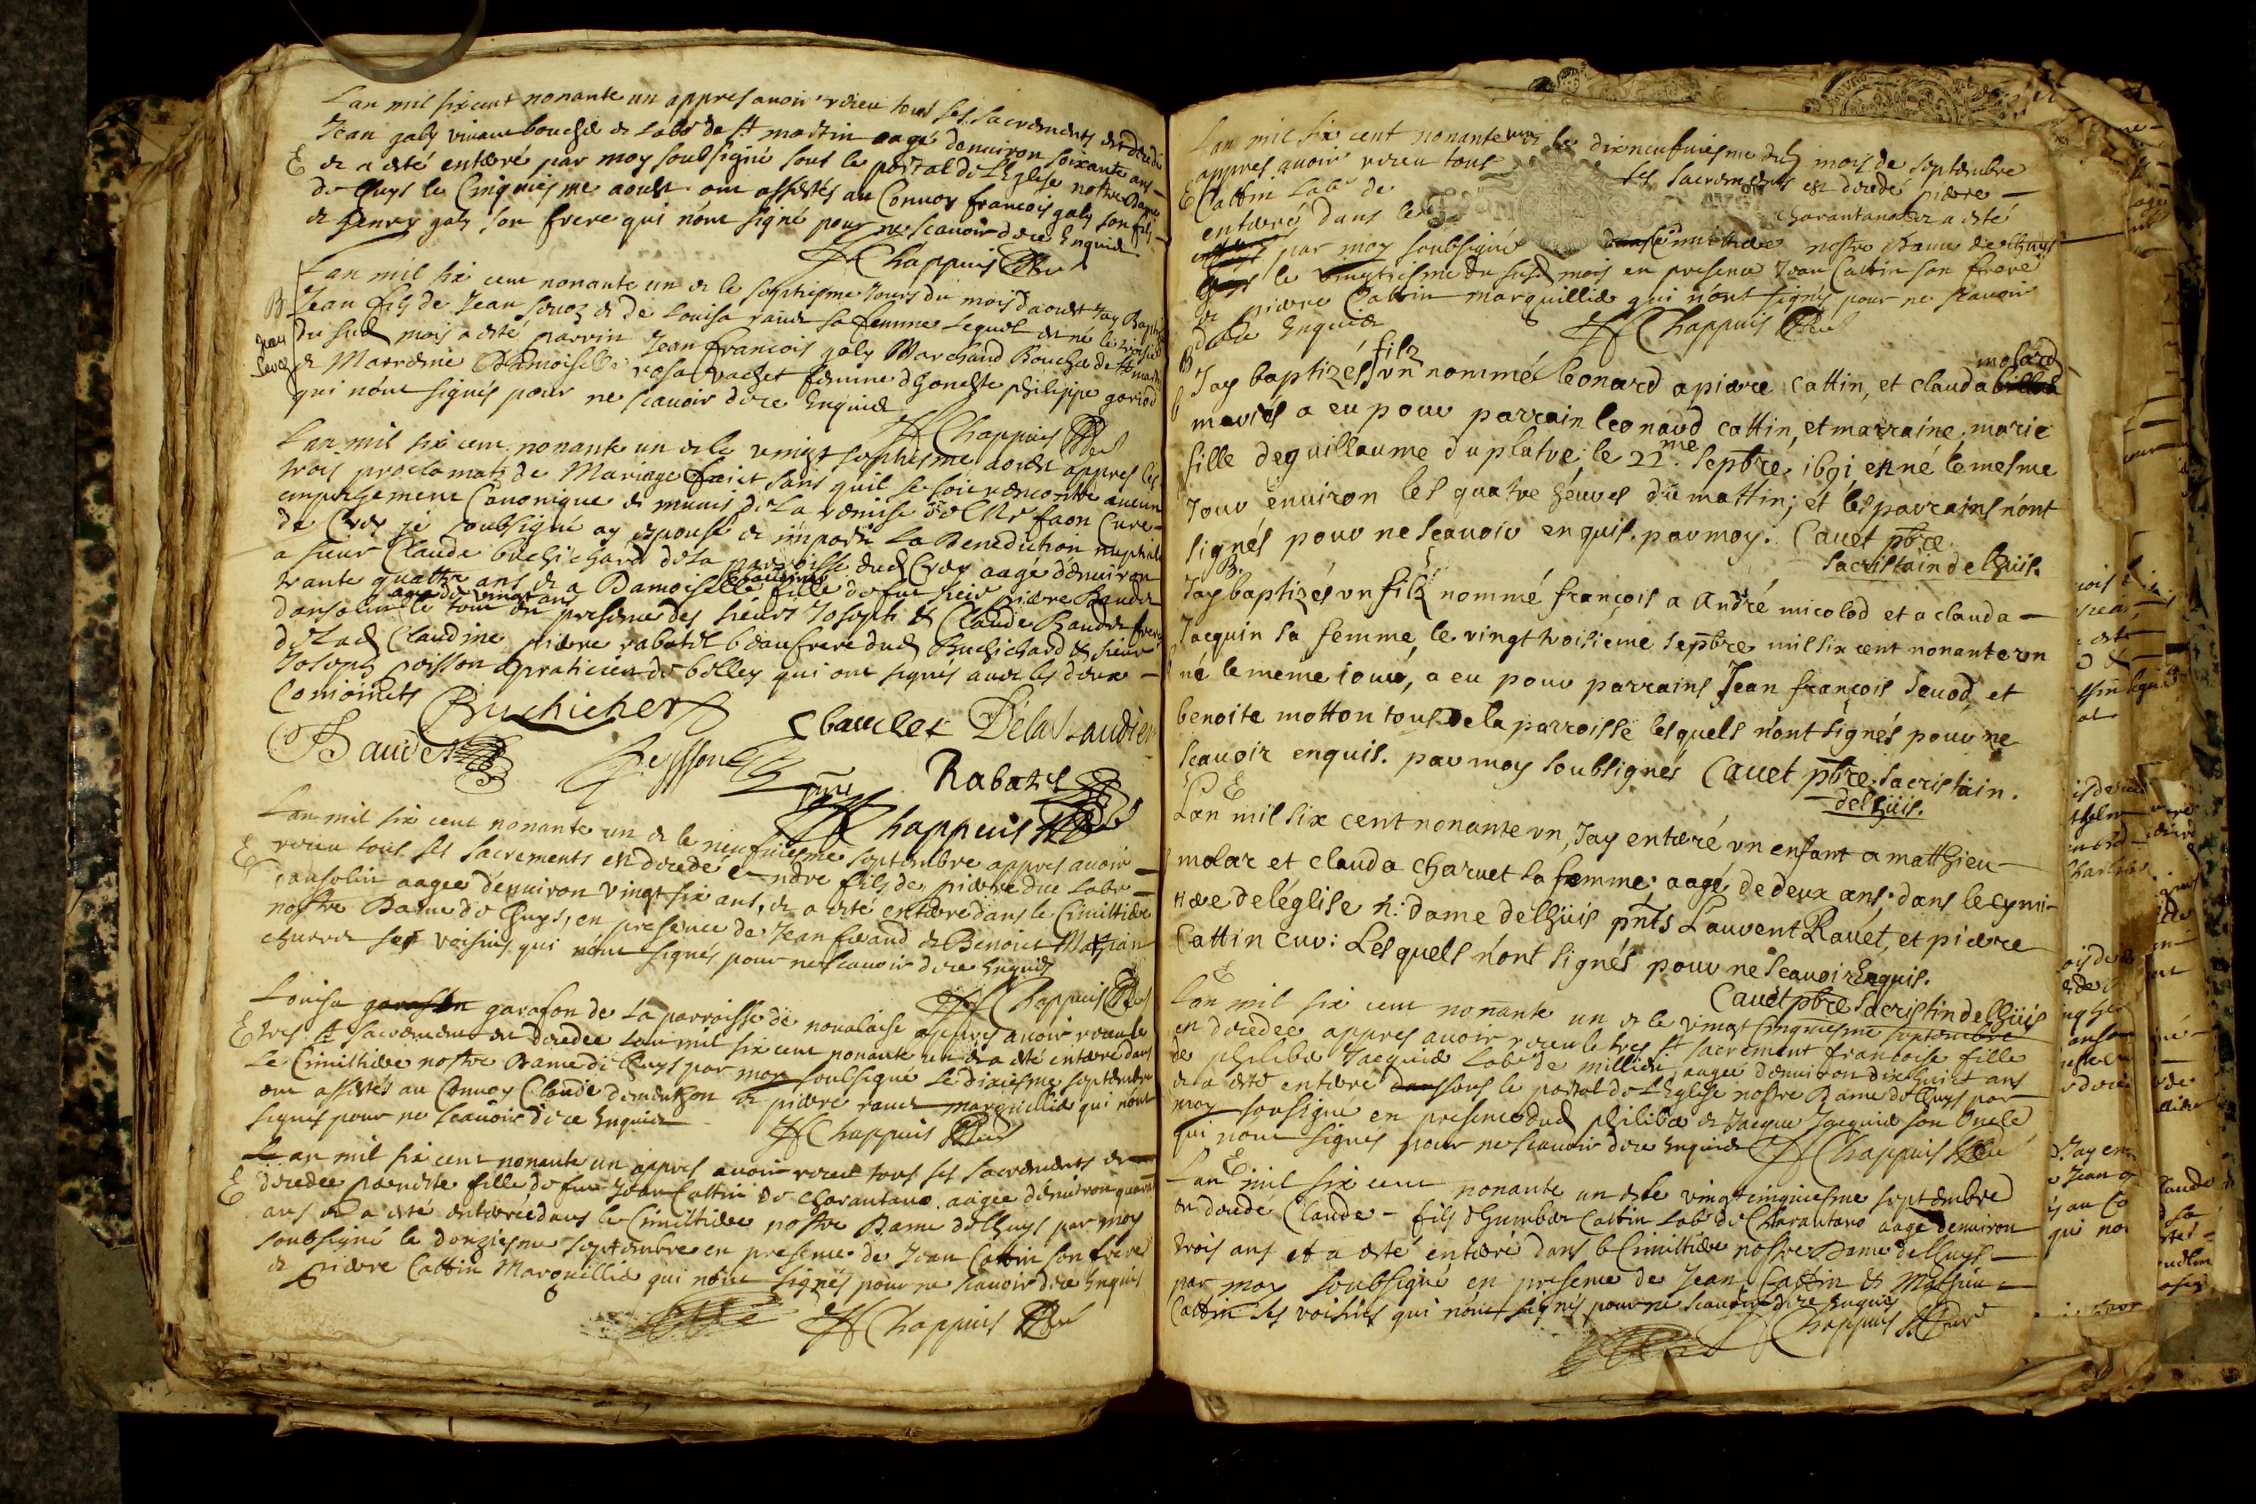 Lan mil six cent nonante un appres avoir receu tous ses sacrements est decedé
Jean galy vivant bouché et labr de st martin aagé denviron soixante ans
E et a esté enterré par moy soubsigné sous le portal de L'Eglise nostre Dame
de Lhuys le Cinquiesme aoust ont assistés au Convoy francois galy son fils
et henry galy son frere qui n'ont signé pour ne scavoir de ce Enquis
Chappuis
Lan mil six cent nonante un et le septiesme Jours du mois daoust Jay Baptisé
B Jean fils de Jean sevoz et de Louisa ravet sa femme lequel est né le troisie
Jean sevoz
du susd mois a esté parrin Jean francois galy Marchand Bouché de st martin
et Marreine Damoiselle rosa vachet femme dhoneste philippe goriod
qui n'ont signés pour ne scavoir de ce Enquis
Chappuis
Lan mil six cent nonante un et le vingt septiesme aoust appres les
trois proclamatz de Mariage faict sans quil se soie rencontré aucun
empechement Canonique et munis de La remise de Mr faon Cure
de Crey je soubsigné ay espousé et imparti La Benediction nuptiale
a sieur Claude buchichard de La parroisse dud Crey aagé denviron
trante quattre ans et a Damoiselle fille de feu sieur piere Baudet
aagée de vingt ans
Dansolin le tout en presence des sieurs Joseph et Claude Baudet freres
de Lad Claudine piere rabatel beaufrere dud Buchichard et sieur
Joseph poisson praticien de belley qui ont signés avec les deux
Conjoincts
Buchicher
C baudet
Baudet
Peysson
Rabatel
Chappuis
Lan mil six cent nonante un et le neufiesme septembre appres avoir
E receu tous ses sacrements est decedé Endre fils de piere due Labr
Dansolin aagee denviron vingt six ans, et a esté enterré dans le Cimittiere
nostre Dame de Lhuys, en presence de Jean feraud et Benoict Matian
ses voisins qui n'ont signés pour ne scavoir de ce Enquis
Chappuis
Louisa garafon de La parroisse de novalaise appres avoir receu le
E tres st sacrement est decedee Lan mil six cent nonante un et a esté enterré dans
Le Cimittiere nostre Dame de Lhuys par moy soubsigné Le dixiesme septembre
ont assistés au Convoy Claude et piere ravet marguillié qui n'ont
signés pour ne scavoir de ce Enquis
Chappuis
Lan mil six cent nonante un appres avoir receu tous ses sacrements est
E decedee fille de feu Jean Cattin de Charantano aagee denviron quarante
ans et a esté enterrée dans le Cimittiere nostre Dame de Lhuys par moy
soubsigné le douziesme septembre en presence de Jean Cattin son frere
et piere Cattin Marguillié qui n'ont signés pour ne scavoir de ce Enquis
Chappuis
Lan mil six cent nonante un et le dixneufuiesme dud mois de septembre
appres avoir receu tous ses sacrements est decedé piere
E Cattin Labr de Charantano et a esté
enterré dans le cimittiere nostre Dame de Lhuys
par moy soubsigné
le vingtiesme du susd mois en presence Jean Cattin son frere
et piere Cattin marguillié qui n'ont signés pour ne scavoir
de ce Enquis
Chappuis
B
Jay baptizés un filz nommé leonard a piere cattin, et clauda molard
mariés a eu pour parrain leonard cattin, et marraine, marie
fille de guillaume duplatre; le 22me. septbre. 1691 est né le mesme
Jour environ les quatre heures du mattin; et les parrains n'ont
signés pour ne scavoir enquis. par moy. Cavet pbre
sacristain de lhüis.
B.
Jay baptizés un filz nommé françois a André micolod et a clauda
Jacquin sa femme, le vingt troisiéme septbre mil six cent nonante vn
né le meme iour, a eu pour parrains Jean françois sevod, et
benoite motton tous de la parroisse lesquels n'ont signés pour ne
scavoir enquis. par moy soubsignés Cavet pbre. sacristain.
de lhüis.
E
Lan mil six cent nonante vn, Jay enterré vn enfant a matthieu
molar et clauda charvet sa femme; aagé de deux ans; dans le cymi-
tiere de léglise n: dame de lhüis pnts Lauvent Ravét, et piere
Cattin cuv: Lesquels n'ont signés pour ne scavoir Enquis.
Cavét pbre sacristin de lhüis
E
Lan mil six cent nonante un et le vingt cinquiesme septembre
est decedee appres avoir receu le tres st sacrement francoise fille
de philibe Jacquié Labr de millieu, aagee denviron dix huict ans
et a esté enterré sous le portal de L'Eglise nostre Dame de Lhuys par
moy sousigné en presence dud philibe et Jacque Jacquié son Oncle
qui n'ont signés pour ne scavoir de ce Enquis
Chappuis
E
Lan mil six cent nonante un et le vingt cinquiesme septembre
est decedé Claude fils dhumber Cattin Labr de Charantano aagé denviron
trois ans et a esté enterré dans le Cimittiere nostre Dame de Lhuys
par moy soubsigné en presence de Jean Cattin et Mathieu
Cattin ses voisins qui n'ont signés pour ne scavoir de ce Enquis
Chappuis